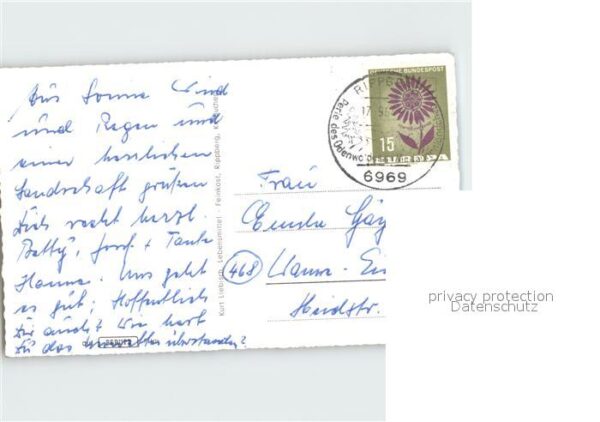 Aus Sonne Wind
und Regen und
einer herrlichen
Landschaft grüßen
Dich recht herzl.
Betty, Josef + Tante
Hanna. Uns geht
es gut; Hoffentlich
Dir auch? Wie hast
Du das überstanden?
Kurt Liebisch, Lebensmittel - Feinkost, Rippberg,
RIPPB
17.9
Perle des Odenwaldes
6969
DEUTSCHE BUNDESPOST
15
CEPT
Frau
468
Wanne-Ei
Heidstr.
privacy protection
Datenschutz